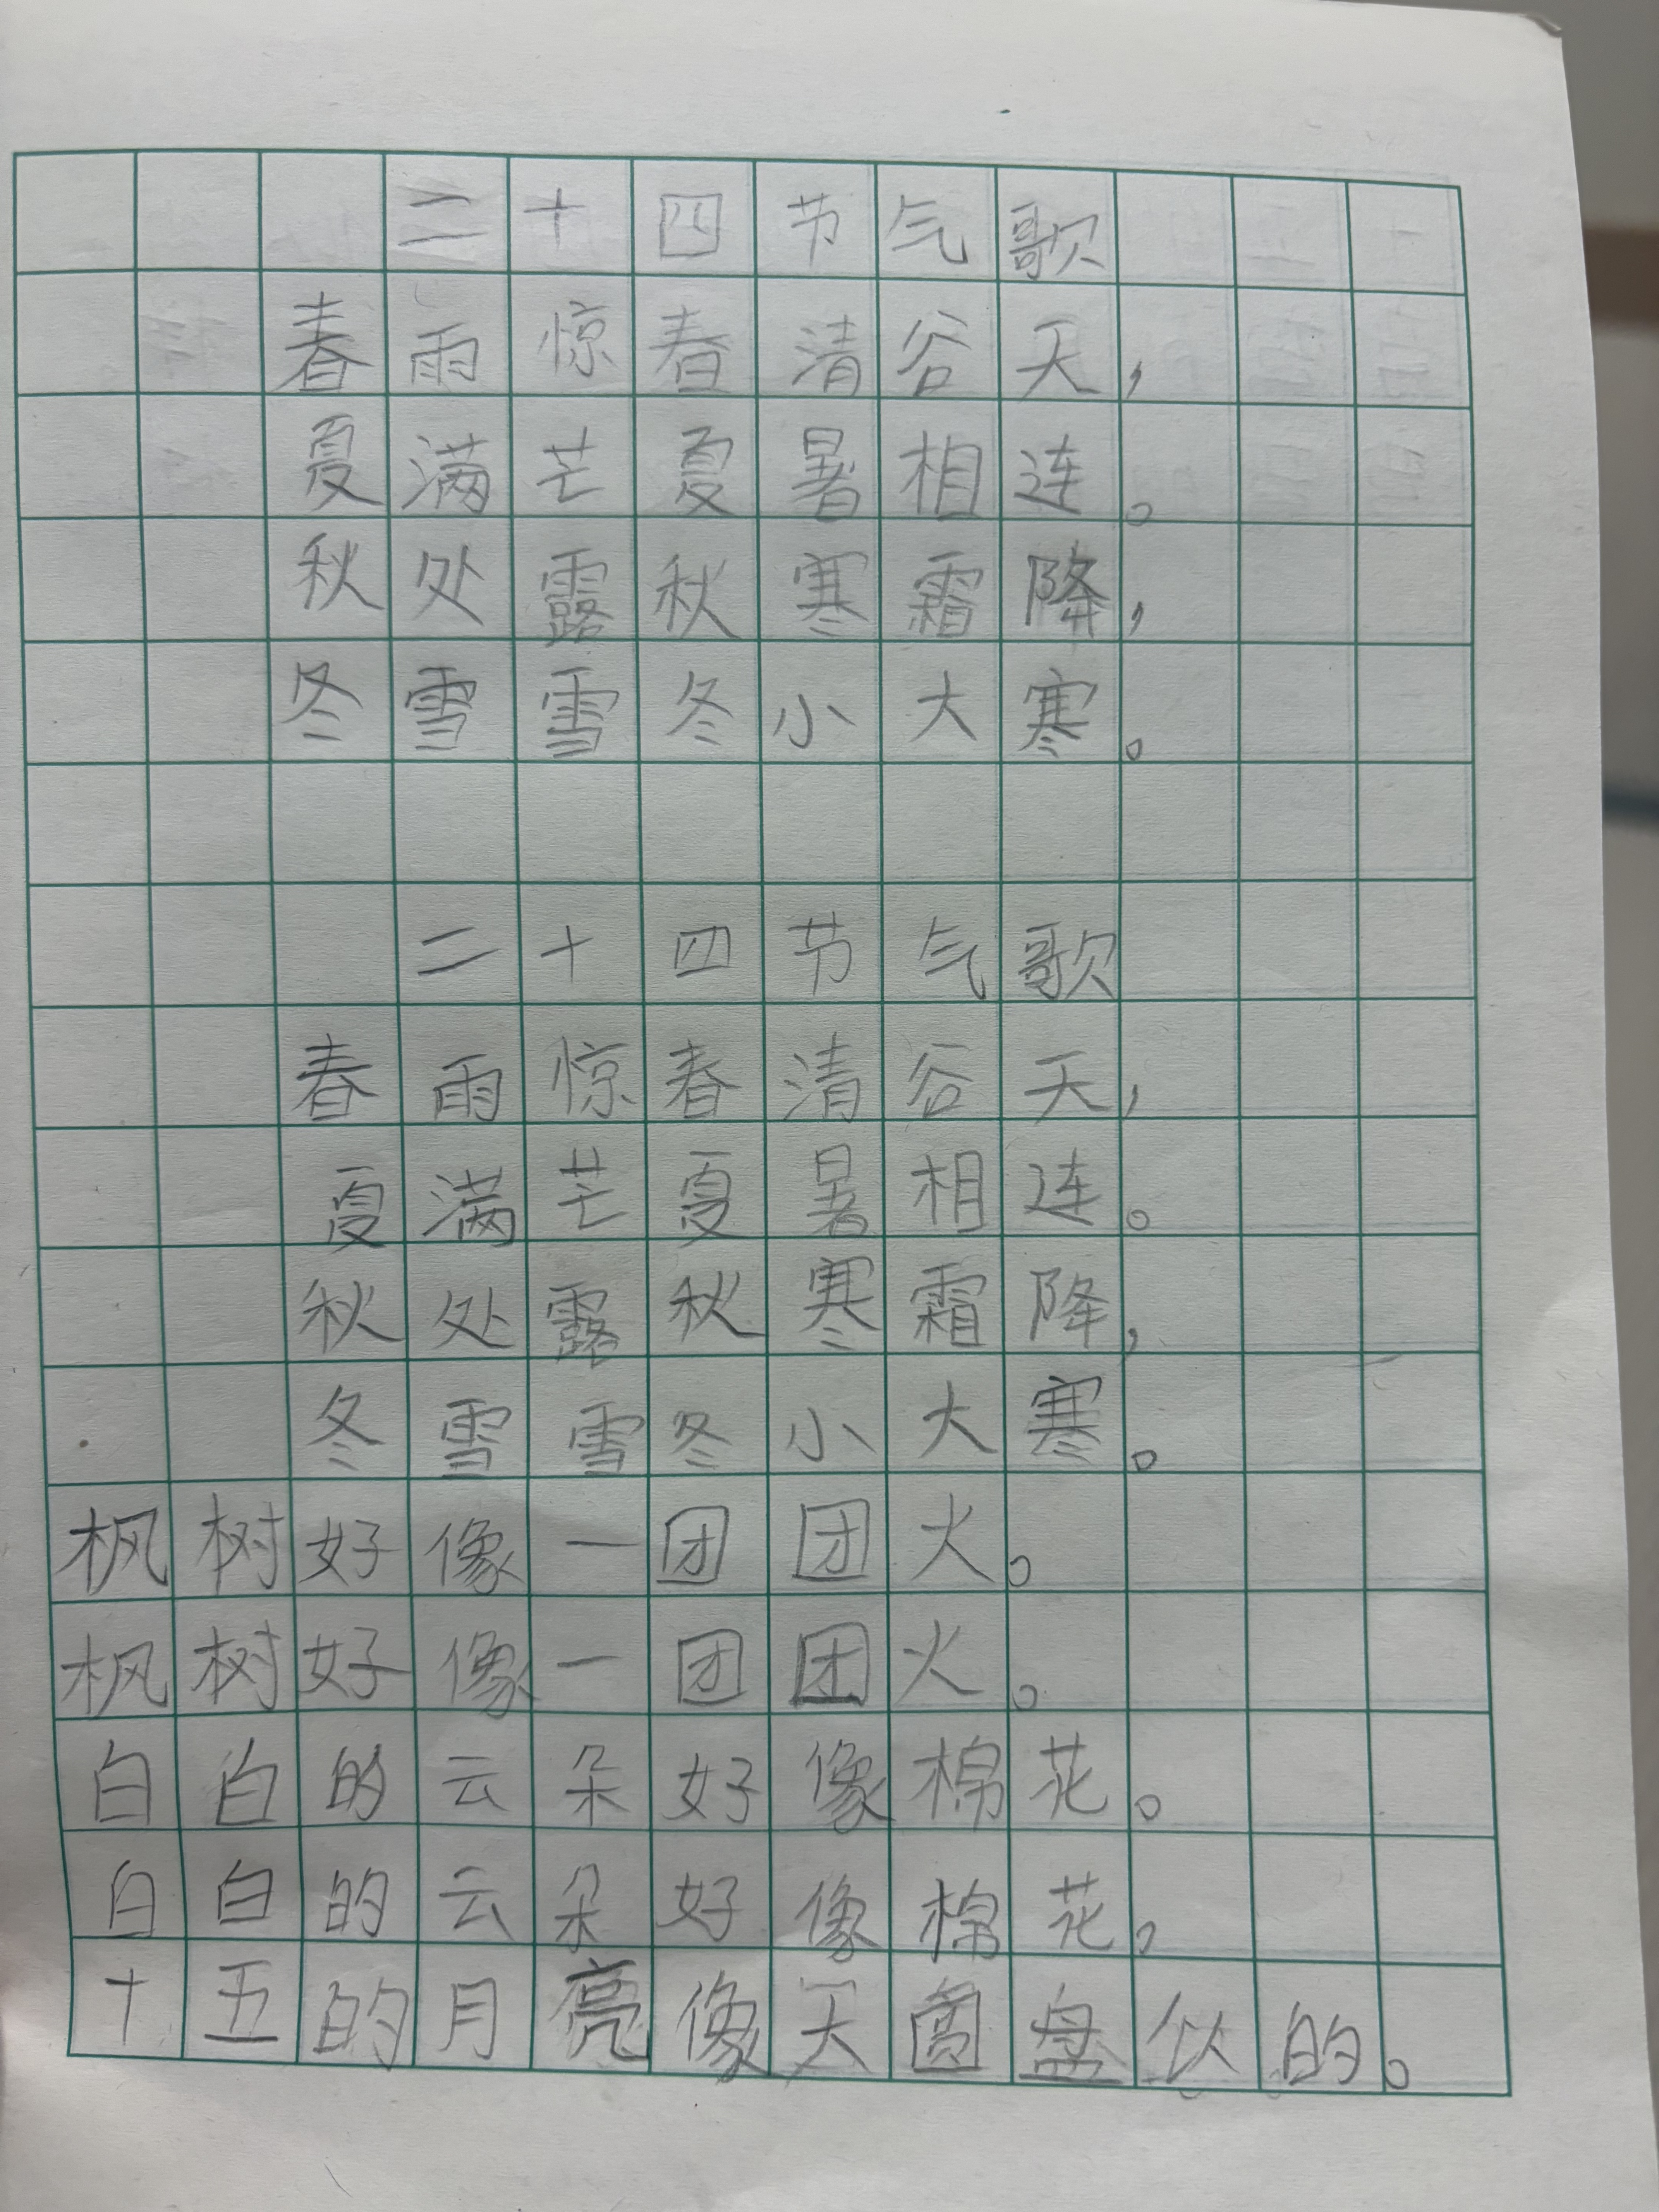 二十四节气歌
春雨惊春清谷天，
夏满芒夏暑相连。
秋处露秋寒霜降，
冬雪雪冬小大寒。
二十四节气歌
春雨惊春清谷天，
夏满芒夏暑相连。
秋处露秋寒霜降，
冬雪雪冬小大寒。
枫树好像一团团火。
枫树好像一团团火。
白白的云朵好像棉花。
白白的云朵好像棉花，
十五的月亮像天圆盘似的。